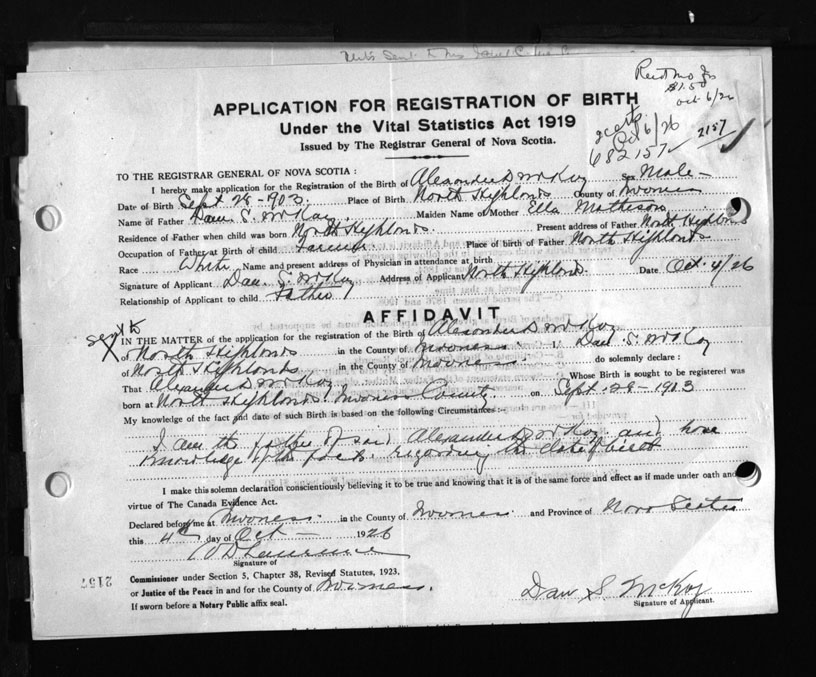 Oct 6/26
$1.50
APPLICATION FOR REGISTRATION OF BIRTH
Under the Vital Statistics Act 1919
Issued by The Registrar General of Nova Scotia.
Oct 6/26
682157
2157
TO THE REGISTRAR GENERAL OF NOVA SCOTIA :
I hereby make application for the Registration of the Birth of Alexander D McKay Sex Male -
Date of Birth Sept 28 - 903. Place of Birth North Highlands County of Inverness
Name of Father Dan S. McKay Maiden Name of Mother Ella Matheson
Residence of Father when child was born North Highlands. Present address of Father North Highlands
Occupation of Father at Birth of child Farmer. Place of birth of Father North Highlands
Race White Name and present address of Physician in attendance at birth
Signature of Applicant Dan S. McKay Address of Applicant North Highlands. Date Oct. 4/26
Relationship of Applicant to child Father
AFFIDAVIT
IN THE MATTER of the application for the registration of the Birth of Alexander D McKay
of North Highlands in the County of Inverness I, Dan S. McKay
of North Highlands in the County of Inverness do solemnly declare :
That Alexander D McKay Whose Birth is sought to be registered was
born at North Highlands Inverness County on Sept. 28 - 1903
My knowledge of the fact and date of such Birth is based on the following Circumstances :-
I am the father of said Alexander D McKay and have
knowledge of the facts regarding the date of birth
I make this solemn declaration conscientiously believing it to be true and knowing that it is of the same force and effect as if made under oath and
virtue of The Canada Evidence Act.
Declared before me at Inverness in the County of Inverness and Province of Nova Scotia
this 4th day of Oct - 1926
Signature of
Commissioner under Section 5, Chapter 38, Revised Statutes, 1923.
or Justice of the Peace in and for the County of Inverness.
If sworn before a Notary Public affix seal.
Dan S. McKay
Signature of Applicant.
2157